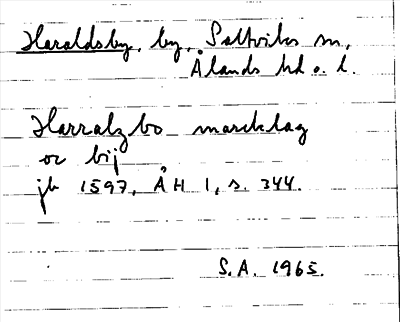 Haraldsby, by, Saltviks sn,
Ålands hd o. l.
Harralz bo marcklag
oc bij
jb 1597, ÅH 1, s. 344.
S.A. 1965.